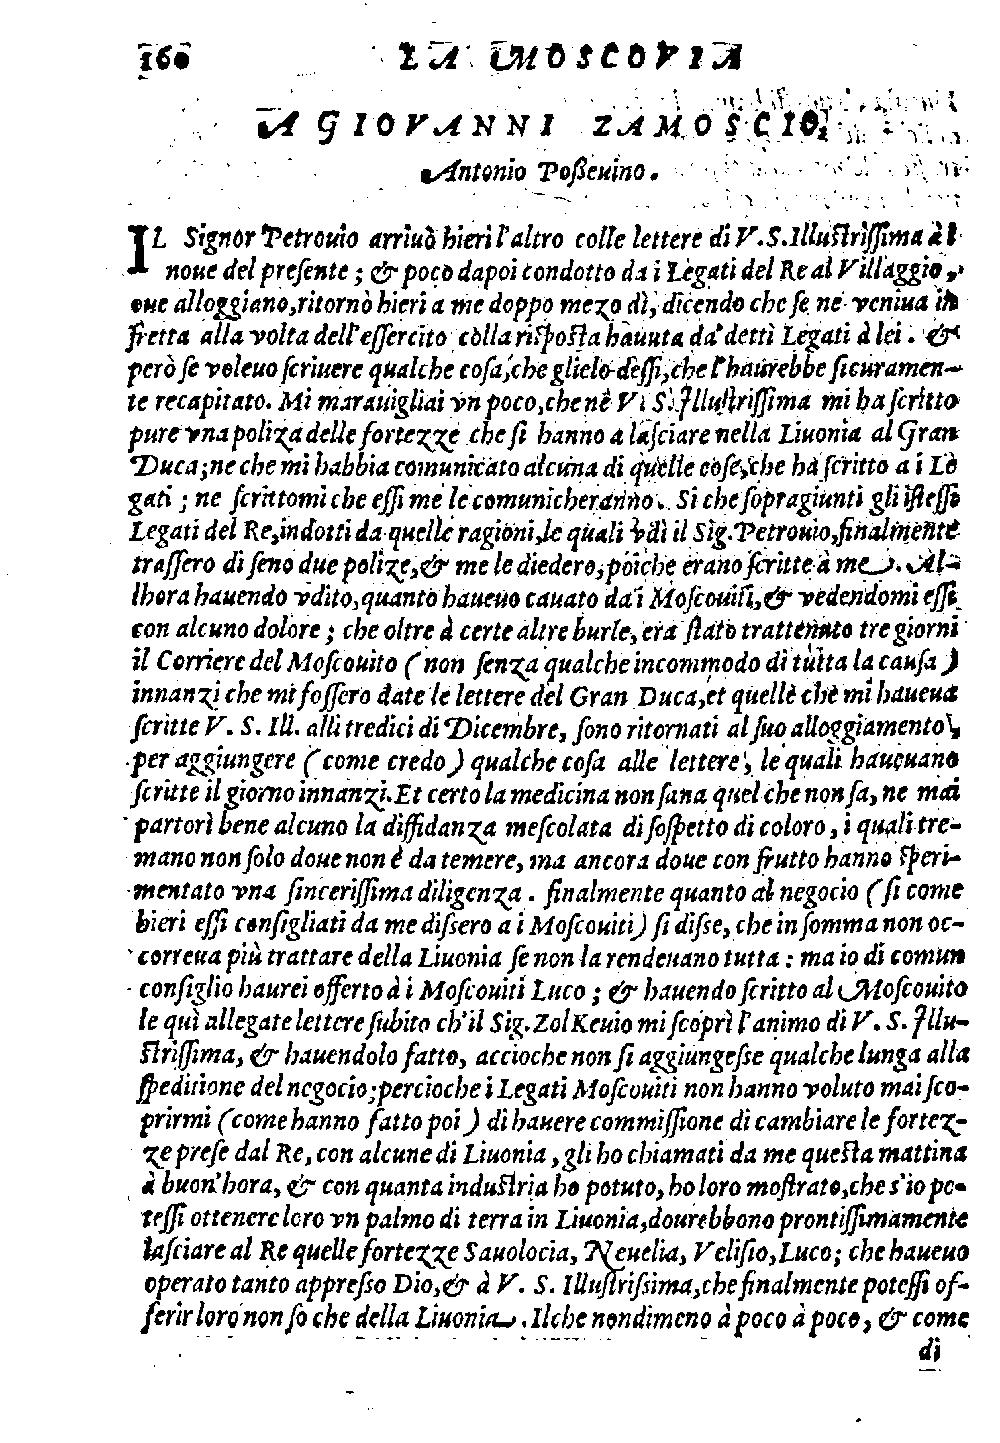 160 LA MOSCOVIA
A GIOVANNI ZAMOSCIO,
Antonio Poſſeuino.
IL Signor Petrouio arriuò hieri l'altro colle lettere di V. S. Illuſtriſſima à i
noue del preſente ; & poco dapoi condotto da i Legati del Re al Villaggio,
oue alloggiano, ritornò hieri a me doppo mezo dì, dicendo che ſe ne veniua in
fretta alla volta dell'eſſercito colla riſpoſta hauuta da' detti Legati à lei . &
però ſe voleuo ſcriuere qualche coſa, che glielo deſſi, che l'haurebbe ſicuramen-
te recapitato. Mi marauigliai vn poco, che nè V. S. Illuſtriſſima mi ha ſcritto
pure vna poliza delle fortezze che ſi hanno a laſciare nella Liuonia al Gran
Duca; ne che mi habbia comunicato alcuna di quelle coſe, che ha ſcritto a i Le
gati ; ne ſcrittomi che eſſi me le comunicheranno. Si che ſopragiunti gli iſteſſi
Legati del Re, indotti da quelle ragioni, le quali vdì il Sig. Petrouio, finalmente
traſſero di ſeno due polize, & me le diedero, poiche erano ſcritte à me. Al-
lhora hauendo vdito, quanto haueuo cauato da i Moſcouiti, & vedendomi eſſi
con alcuno dolore ; che oltre à certe altre burle, era ſtato trattenuto tre giorni
il Corriere del Moſcouito ( non ſenza qualche incommodo di tutta la cauſa )
innanzi che mi foſſero date le lettere del Gran Duca, et quelle che mi haueua
ſcritte V. S. Ill. alli tredici di Dicembre, ſono ritornati al ſuo alloggiamento,
per aggiungere ( come credo ) qualche coſa alle lettere, le quali haueuano
ſcritte il giorno innanzi. Et certo la medicina non ſana quel che non ſa, ne mai
partorì bene alcuno la diffidanza meſcolata di ſoſpetto di coloro, i quali tre-
mano non ſolo doue non è da temere, ma ancora doue con frutto hanno ſperi-
mentato vna ſinceriſſima diligenza . finalmente quanto al negocio ( ſi come
hieri eſſi conſigliati da me diſsero a i Moſcouiti) ſi diſse, che in ſomma non oc-
correua più trattare della Liuonia ſe non la rendeuano tutta : ma io di comun
conſiglio haurei offerto à i Moſcouiti Luco ; & hauendo ſcritto al Moſcouito
le quì allegate lettere ſubito ch'il Sig. Zolkeuio mi ſcoprì l'animo di V. S. Illu-
ſtriſſima, & hauendolo fatto, accioche non ſi aggiungeſse qualche lunga alla
ſpeditione del negocio; percioche i Legati Moſcouiti non hanno voluto mai ſco-
prirmi ( come hanno fatto poi ) di hauere commiſſione di cambiare le fortez-
ze preſe dal Re, con alcune di Liuonia , gli ho chiamati da me queſta mattina
à buon'hora, & con quanta induſtria ho potuto, ho loro moſtrato, che s'io po-
teſſi ottenere loro vn palmo di terra in Liuonia, dourebbono prontiſſimamente
laſciare al Re quelle fortezze Sauolocia, Neuelia, Veliſio, Luco; che haueuo
operato tanto appreſso Dio, & à V. S. Illuſtriſsima, che finalmente poteſſi of-
ferir loro non ſo che della Liuonia. Ilche nondimeno à poco à poco, & come
di